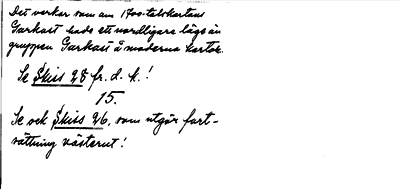 Det verkar som om 1700-talskartans
Garkast hade ett nordligare läge än
gruppen Garkast å moderna kartor.
Se Skiss 28 fr. d. k.!
15.
Se ock Skiss 26, som utgör fort-
sättning västerut!